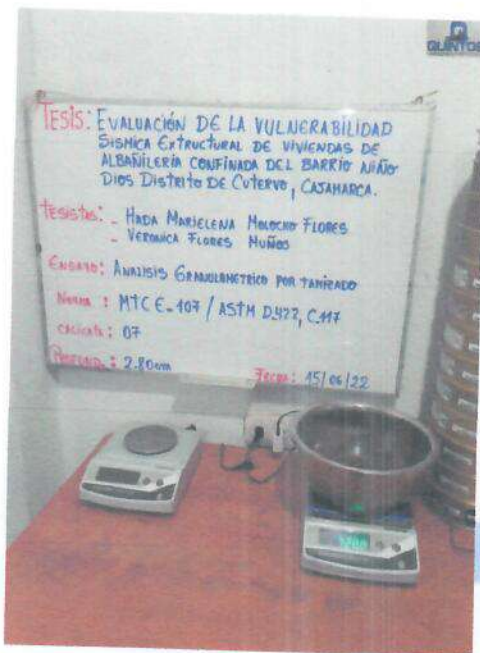 QUINTOS
TESIS: EVALUACIÓN DE LA VULNERABILIDAD
SISMICA EXTRUCTURAL DE VIVIENDAS DE
ALBAÑILERÍA CONFINADA DEL BARRIO NIÑO
DIOS DISTRITO DE CUTERVO, CAJAMARCA.
TESISTAS: - HADA MARIELENA MOLOCHO FLORES
- VERONICA FLORES MUÑOS
ENSAYO: ANALISIS GRANULOMETRICO POR TAMIZADO
NORMA : MTC E-107 / ASTM D422, C117
CALICATA : 07
PROFUND. : 2.80
FECHA: 15/06/22